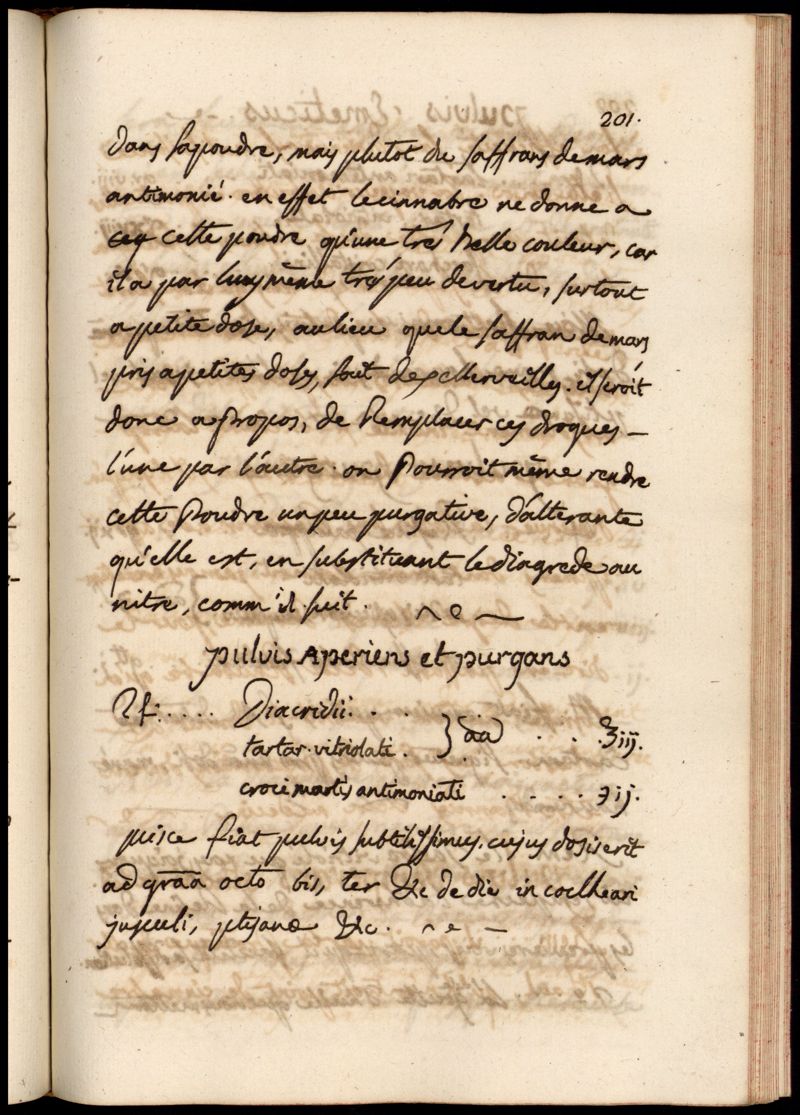 201.
dans sa poudre, mais plutot du saffran de mars
antimonié. en effet le cinnabre ne donne a
cette poudre qu'une tres belle couleur, car
il a par luy même tres peu de vertu, surtout
a petite dose, au lieu que le saffran de mars
pris a petites doses, fait des merveilles. il seroit
donc a propos, de Remplacer ces drogues –
l'une par l'autre. on Pourroit même rendre
cette Poudre un peu purgative, d'alterante
qu'elle est, en substituant le diagrede au
nitre, comm'il suit.
pulvis Aperiens et purgans
℞: .... Diacridii . .
tartar. vitriolati . } aa . . . ʒiij.
croci martis antimoniati . . . . ℈ij.
misce fiat pulvis subtilissimus, cujus dosis erit
ad grãa octo bis, ter &c de die in cochleari
jusculi, ptisanæ &c.